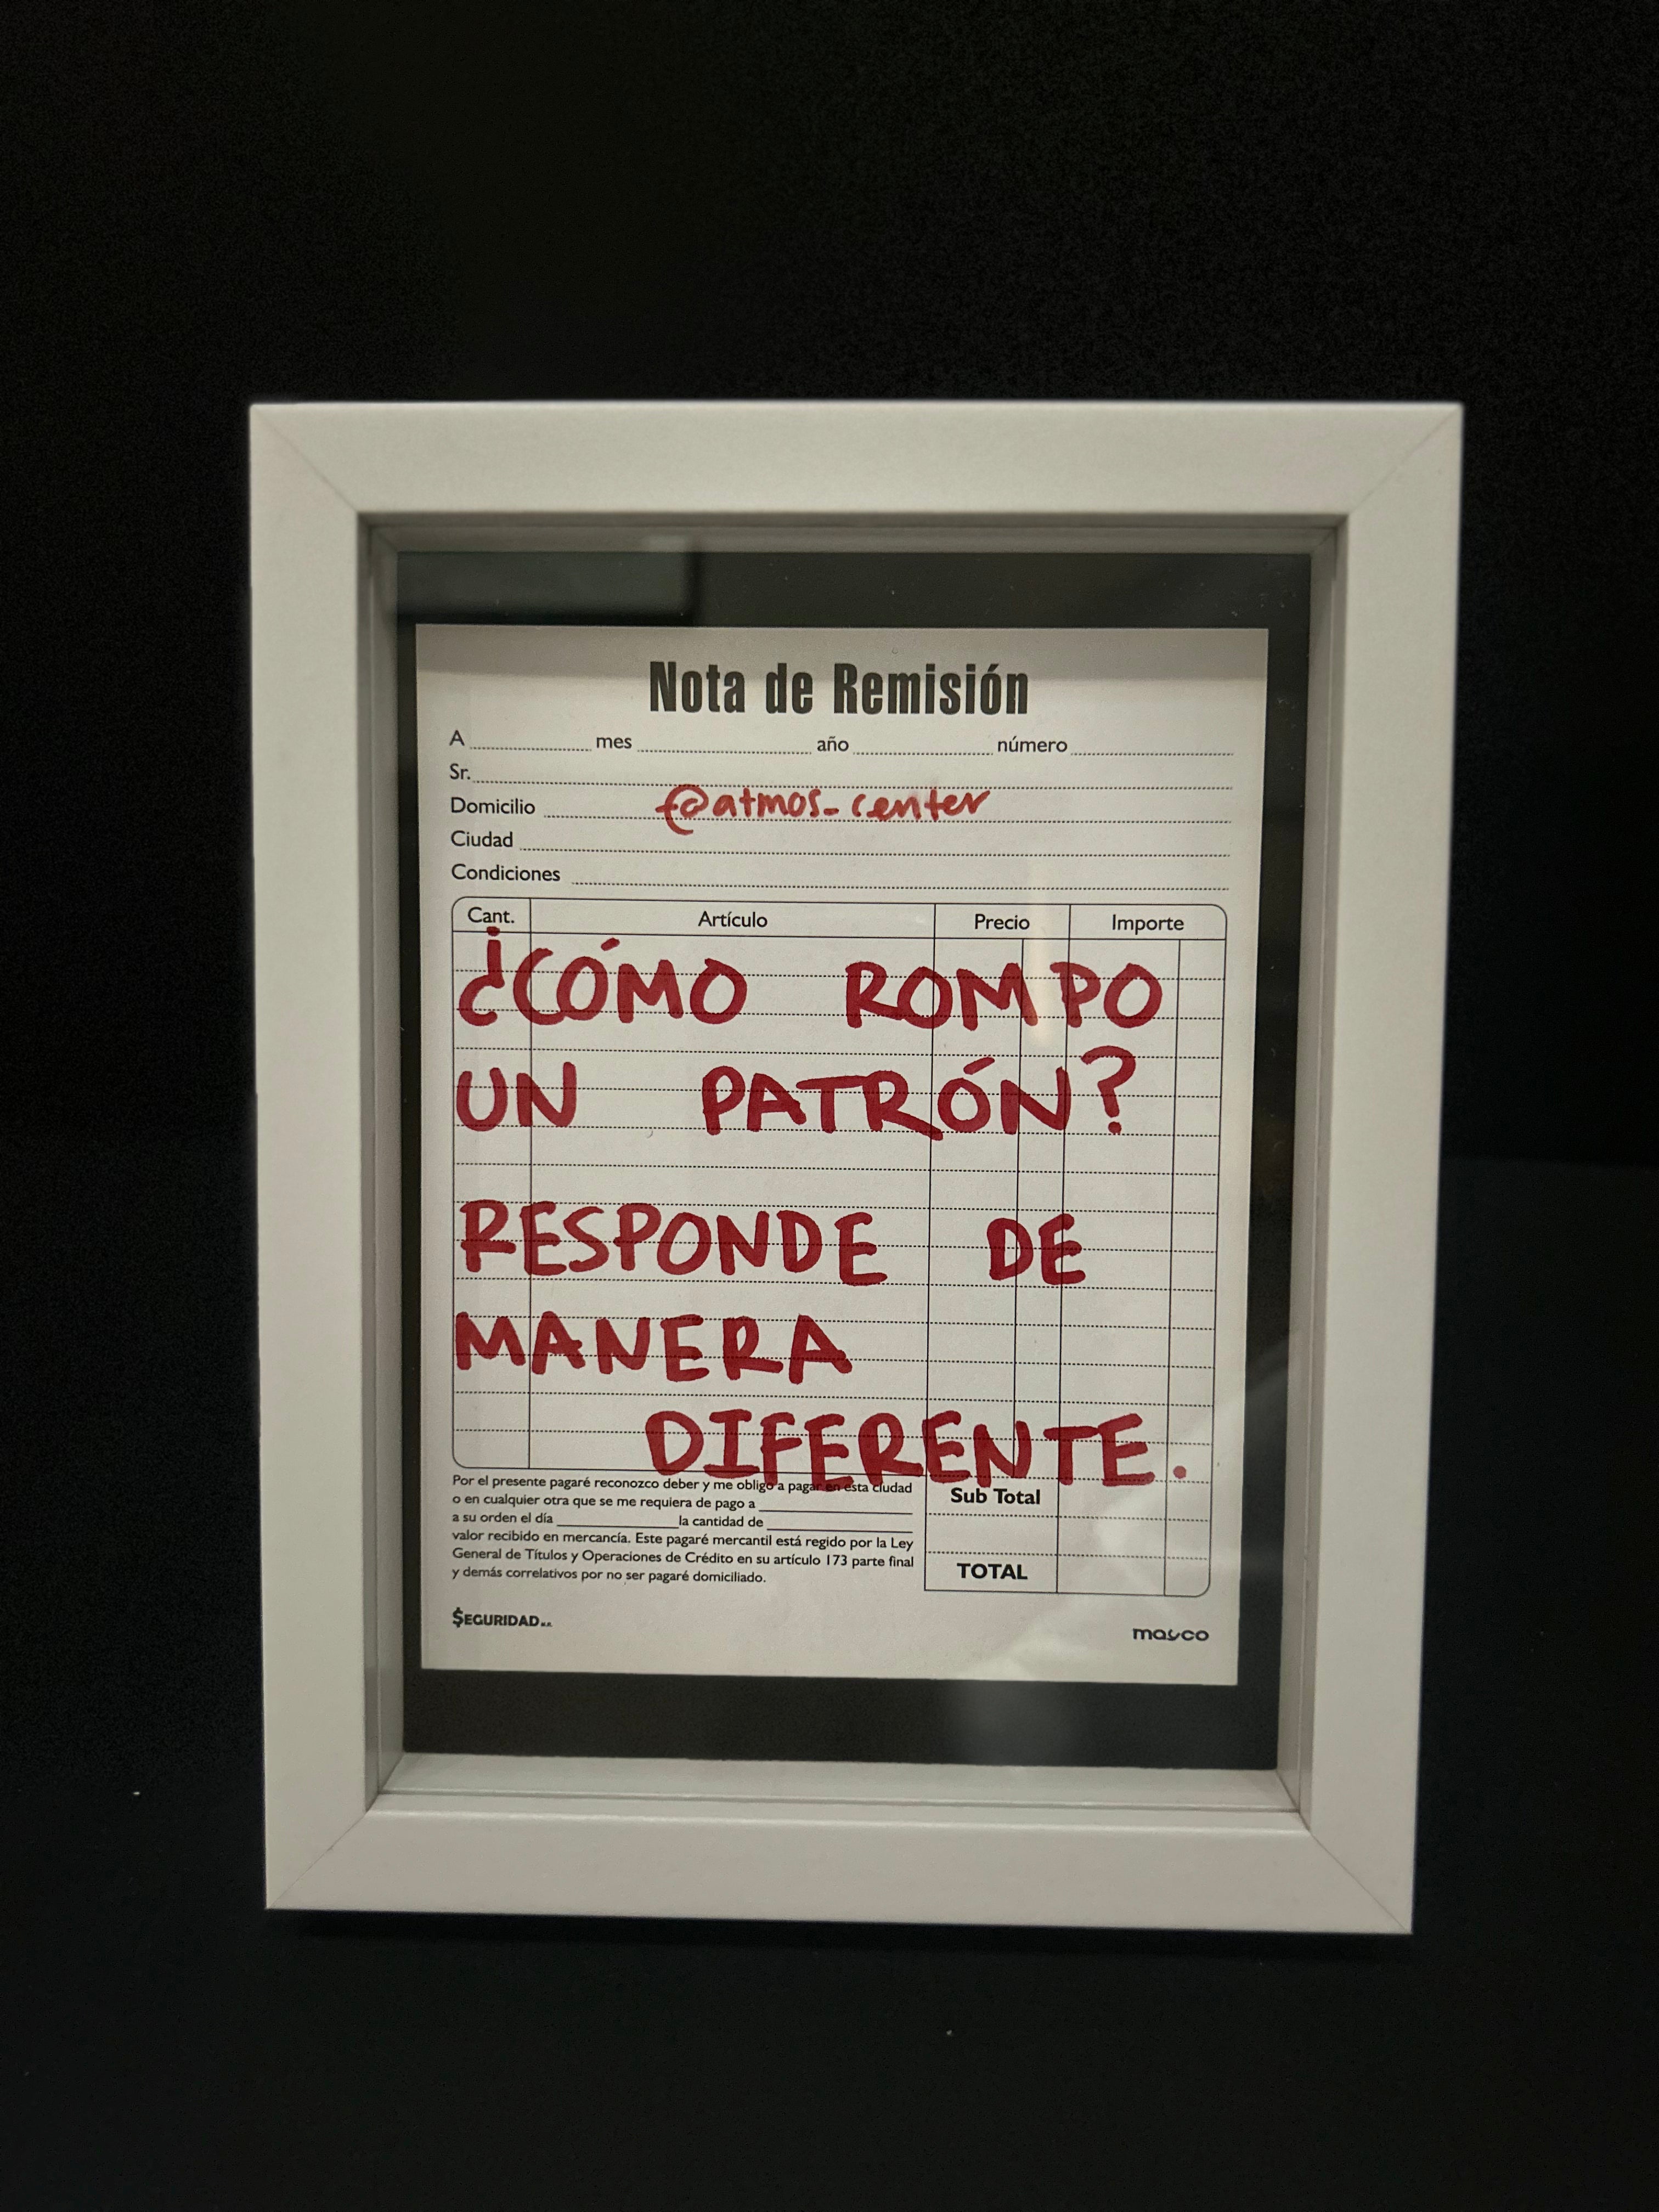 Nota de Remisión
A mes año número
Sr.
Domicilio @atmos_center
Ciudad
Condiciones
Cant. Artículo Precio Importe
¿CÓMO ROMPO
UN PATRÓN?
RESPONDE DE
MANERA
DIFERENTE.
Por el presente pagaré reconozco deber y me obligo a pagar en esta ciudad
o en cualquier otra que se me requiera de pago a
a su orden el día la cantidad de
valor recibido en mercancía. Este pagaré mercantil está regido por la Ley
General de Títulos y Operaciones de Crédito en su artículo 173 parte final
y demás correlativos por no ser pagaré domiciliado.
Sub Total
TOTAL
$EGURIDAD M.R.
mayco